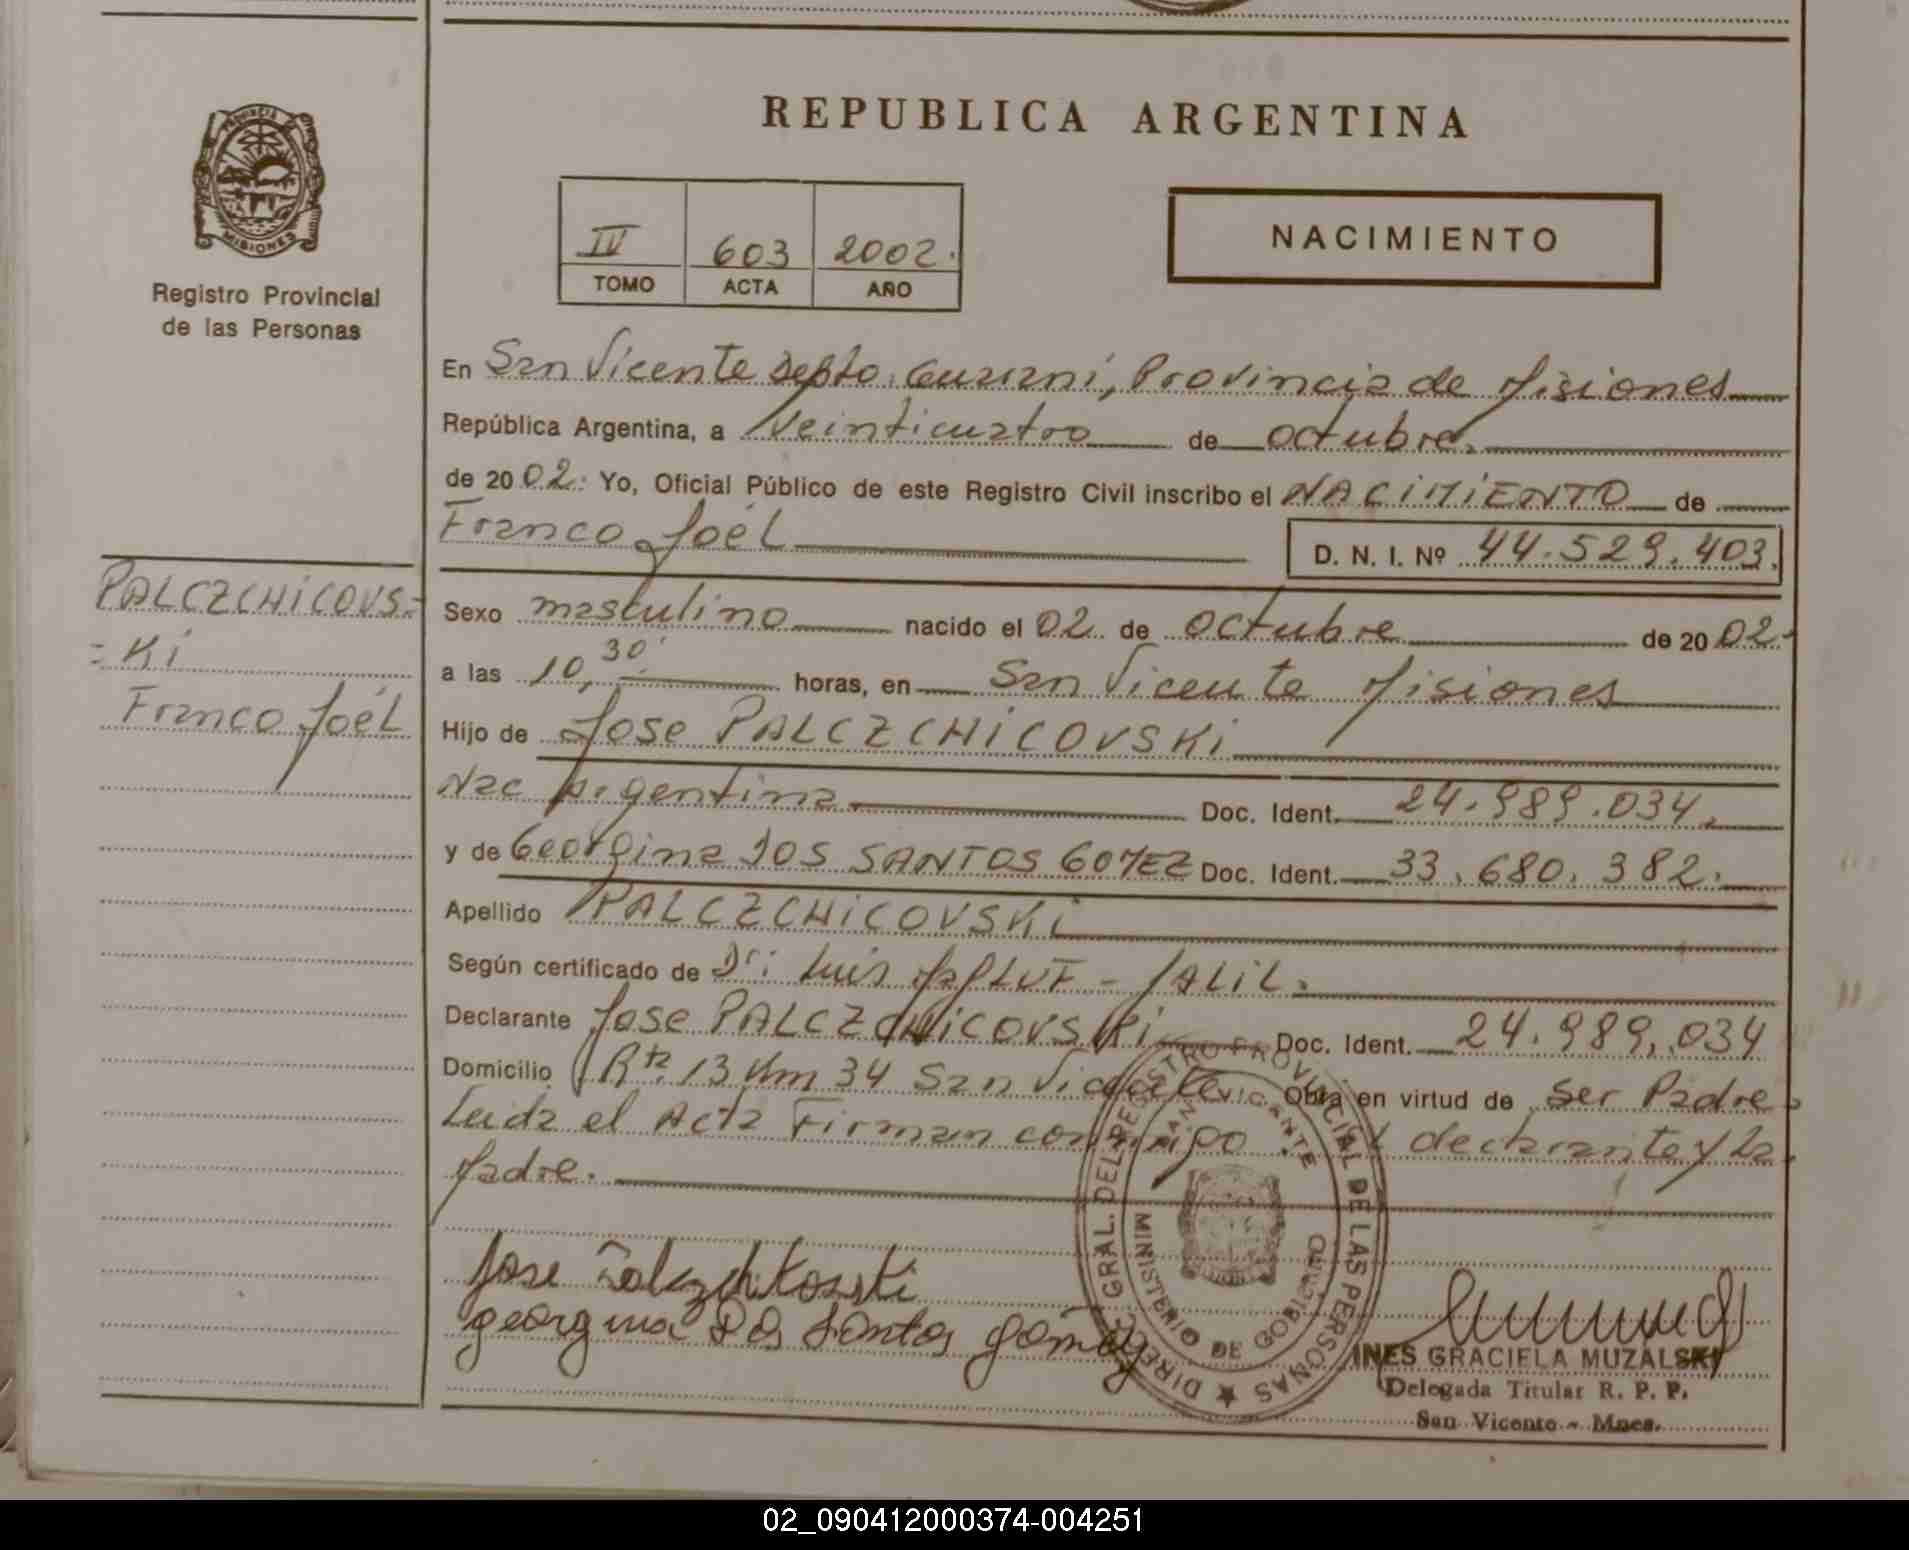 REPUBLICA ARGENTINA
PROVINCIA DE
MISIONES
Registro Provincial
de las Personas
IV 603 2002.
TOMO ACTA AÑO
NACIMIENTO
En San Vicente Depto. Guaraní, Provincia de Misiones
República Argentina, a Veinticuatro de octubre.
de 2002. Yo, Oficial Público de este Registro Civil inscribo el NACIMIENTO de
Franco Joél D. N. I. Nº 44.529.403.
PALCZCHICOVS=
=Ki
Franco Joél
Sexo masculino nacido el 02 de octubre de 2002.
a las 10,30 horas, en San Vicente Misiones
Hijo de Jose PALCZCHICOVSKi
Nac Argentina Doc. Ident. 24.989.034.
y de Georgina DOS SANTOS GOMEZ Doc. Ident. 33.680.382.
Apellido PALCZCHICOVSKi
Según certificado de Dr: Luis
Declarante Jose PALCZCHICOVSKi Doc. Ident. 24.989.034
Domicilio Rta. 13 Km 34 San Vicente Obra en virtud de ser Padre
Leida el Acta Firman conmigo el declarante y la
Madre.
Jose
georgina Dos Santos gomez
DIREC. GRAL. DEL REGISTRO PROVINCIAL DE LAS PERSONAS
SAN VICENTE
MINISTERIO DE GOBIERNO
INES GRACIELA MUZALSKI
Delegada Titular R. P. P.
San Vicente - Mnes.
02_090412000374-004251